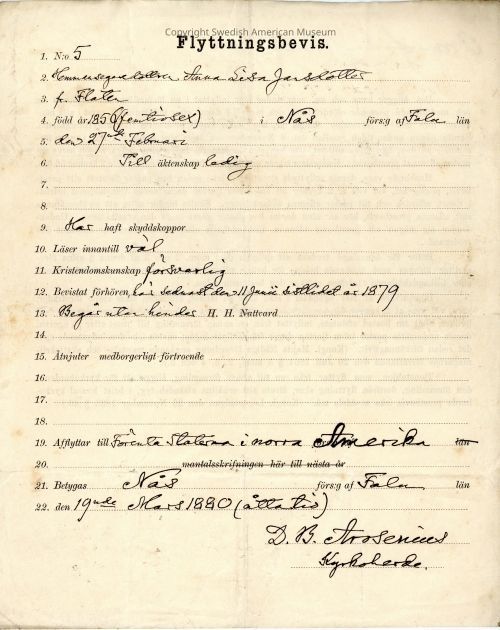 Copyright Swedish American Museum
Flyttningsbevis.
1. N:o 5
2. Hemmansegaredottren Anna Lisa Jansdotter
3. fr. Flaten
4. född år 1856 (femtiosex) i Nås förs:g af Falu län
5. den 27nde Februari
6. Till äktenskap ledig
7.
8.
9. Har haft skyddskoppor
10. Läser innantill väl
11. Kristendomskunskap försvarlig
12. Bevistat förhören, här sednast den 11 Junii sistlidet år 1879
13. Begår utan hinder H. H. Nattvard
14.
15. Åtnjuter medborgerligt förtroende
16.
17.
18.
19. Afflyttar till Förenta Staterna i norra Amerika län
20. mantalsskrifningen här till nästa år
21. Betygas Nås förs:g af Falu län
22. den 19nde Mars 1880 (åttatio)
D. B. Arosenius
Kyrkoherde.